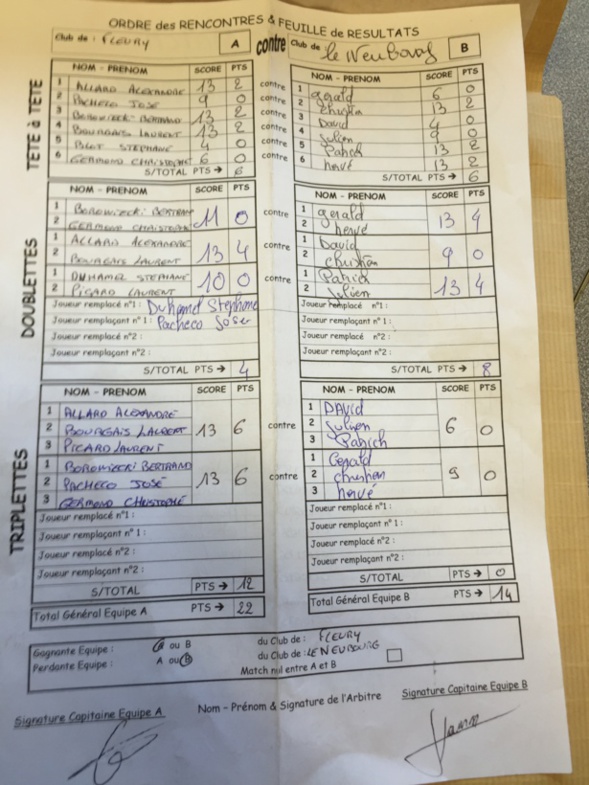 ORDRE des RENCONTRES & FEUILLE de RESULTATS
Club de : FLEURY A contre Club de le Neubourg B
TETE à TETE
NOM - PRENOM SCORE PTS NOM - PRENOM SCORE PTS
1 ALLARD ALEXANDRE 13 2 contre 1 gerald 6 0
2 PACHECO JOSE 9 0 contre 2 christian 13 2
3 BOROWIECKI BERTRAND 13 2 contre 3 David 4 0
4 BOURGAIS LAURENT 13 2 contre 4 Julien 9 0
5 PILOT STEPHANE 4 0 contre 5 Patrick 13 2
6 GERMOND CHRISTOPHE 6 0 contre 6 hervé 13 2
S/TOTAL PTS → 6 S/TOTAL PTS → 6
DOUBLETTES
NOM - PRENOM SCORE PTS NOM - PRENOM SCORE PTS
1 BOROWIECKI BERTRAND 11 0 contre 1 gerald 13 4
2 GERMOND CHRISTOPHE 2 hervé
1 ALLARD ALEXANDRE 13 4 contre 1 David 9 0
2 BOURGAIS LAURENT 2 christian
1 DUHAMEL STEPHANE 10 0 contre 1 Patrick 13 4
2 PICARD LAURENT 2 Julien
Joueur remplacé n°1 : Duhamel Stephane Joueur remplacé n°1 :
Joueur remplaçant n°1 : Pacheco Joser Joueur remplaçant n°1 :
Joueur remplacé n°2 : Joueur remplacé n°2 :
Joueur remplaçant n°2 : Joueur remplaçant n°2 :
S/TOTAL PTS → 4 S/TOTAL PTS → 8
TRIPLETTES
NOM - PRENOM SCORE PTS NOM - PRENOM SCORE PTS
1 ALLARD ALEXANDRE 1 DAVID
2 BOURGAIS LAURENT 13 6 contre 2 Julien 6 0
3 PICARD LAURENT 3 Patrick
1 BOROWIECKI BERTRAND 1 Gerald
2 PACHECO JOSÉ 13 6 contre 2 christian 9 0
3 GERMOND CHRISTOPHE 3 hervé
Joueur remplacé n°1 : Joueur remplacé n°1 :
Joueur remplaçant n°1 : Joueur remplaçant n°1 :
Joueur remplacé n°2 : Joueur remplacé n°2 :
Joueur remplaçant n°2 : Joueur remplaçant n°2 :
S/TOTAL PTS → 12 S/TOTAL PTS → 0
Total Général Equipe A PTS → 22 Total Général Equipe B PTS → 14
Gagnante Equipe : A ou B du Club de : FLEURY
Perdante Equipe : A ou B du Club de : LE NEUBOURG
Match nul entre A et B
Signature Capitaine Equipe A Nom - Prénom & Signature de l'Arbitre Signature Capitaine Equipe B